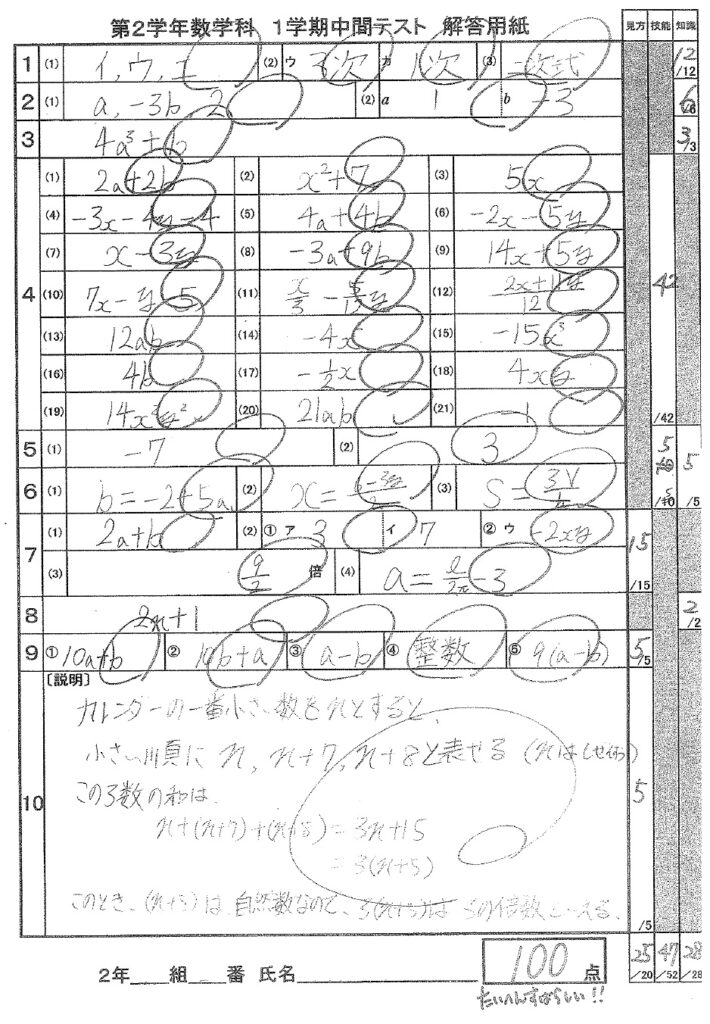 第2学年数学科 1学期中間テスト 解答用紙
見方 技能 知識
1 (1) イ,ウ,エ (2) ウ 3次 カ 1次 (3) 一次式 12 /12
2 (1) a, -3b, 2 (2) a 1 b -3 6 /6
3 4a³+b 3 /3
4 (1) 2a+2b (2) x²+7 (3) 5x
(4) -3x-4y-4 (5) 4a+4b (6) -2x-5y
(7) x-3y (8) -3a+9b (9) 14x+5y
42
(10) 7x-y-5 (11) (12) 2x+11y/12
(13) 12ab (14) -4x (15) -15x³
(16) 4b (17) -1/2x (18) 4xy
(19) 14x²y² (20) 21ab (21) -1 /42
5 (1) -7 (2) 3 5 5
6 (1) b=-2+5a (2) (3) /10 /5
7 (1) 2a+b (2) ① ア 3 イ 7 ② ウ -2xy 15
(3) 9/2 倍 (4) a=ℓ/2π-3 /15
8 2n+1 2 /2
9 ① 10a+b ② 10b+a ③ a-b ④ 整数 ⑤ 9(a-b) 5 /5
10 [説明]
カレンダーの一番小さい数をnとすると、
小さい順にn, n+7, n+8と表せる
この3数の和は、
n+(n+7)+(n+8)=3n+15
=3(n+5)
5
このとき、(n+5)は自然数なので、3(n+5)は3の倍数といえる。
/5
2年 組 番 氏名 100 点
25 47 28
/20 /52 /28
たいへんすばらしい!!